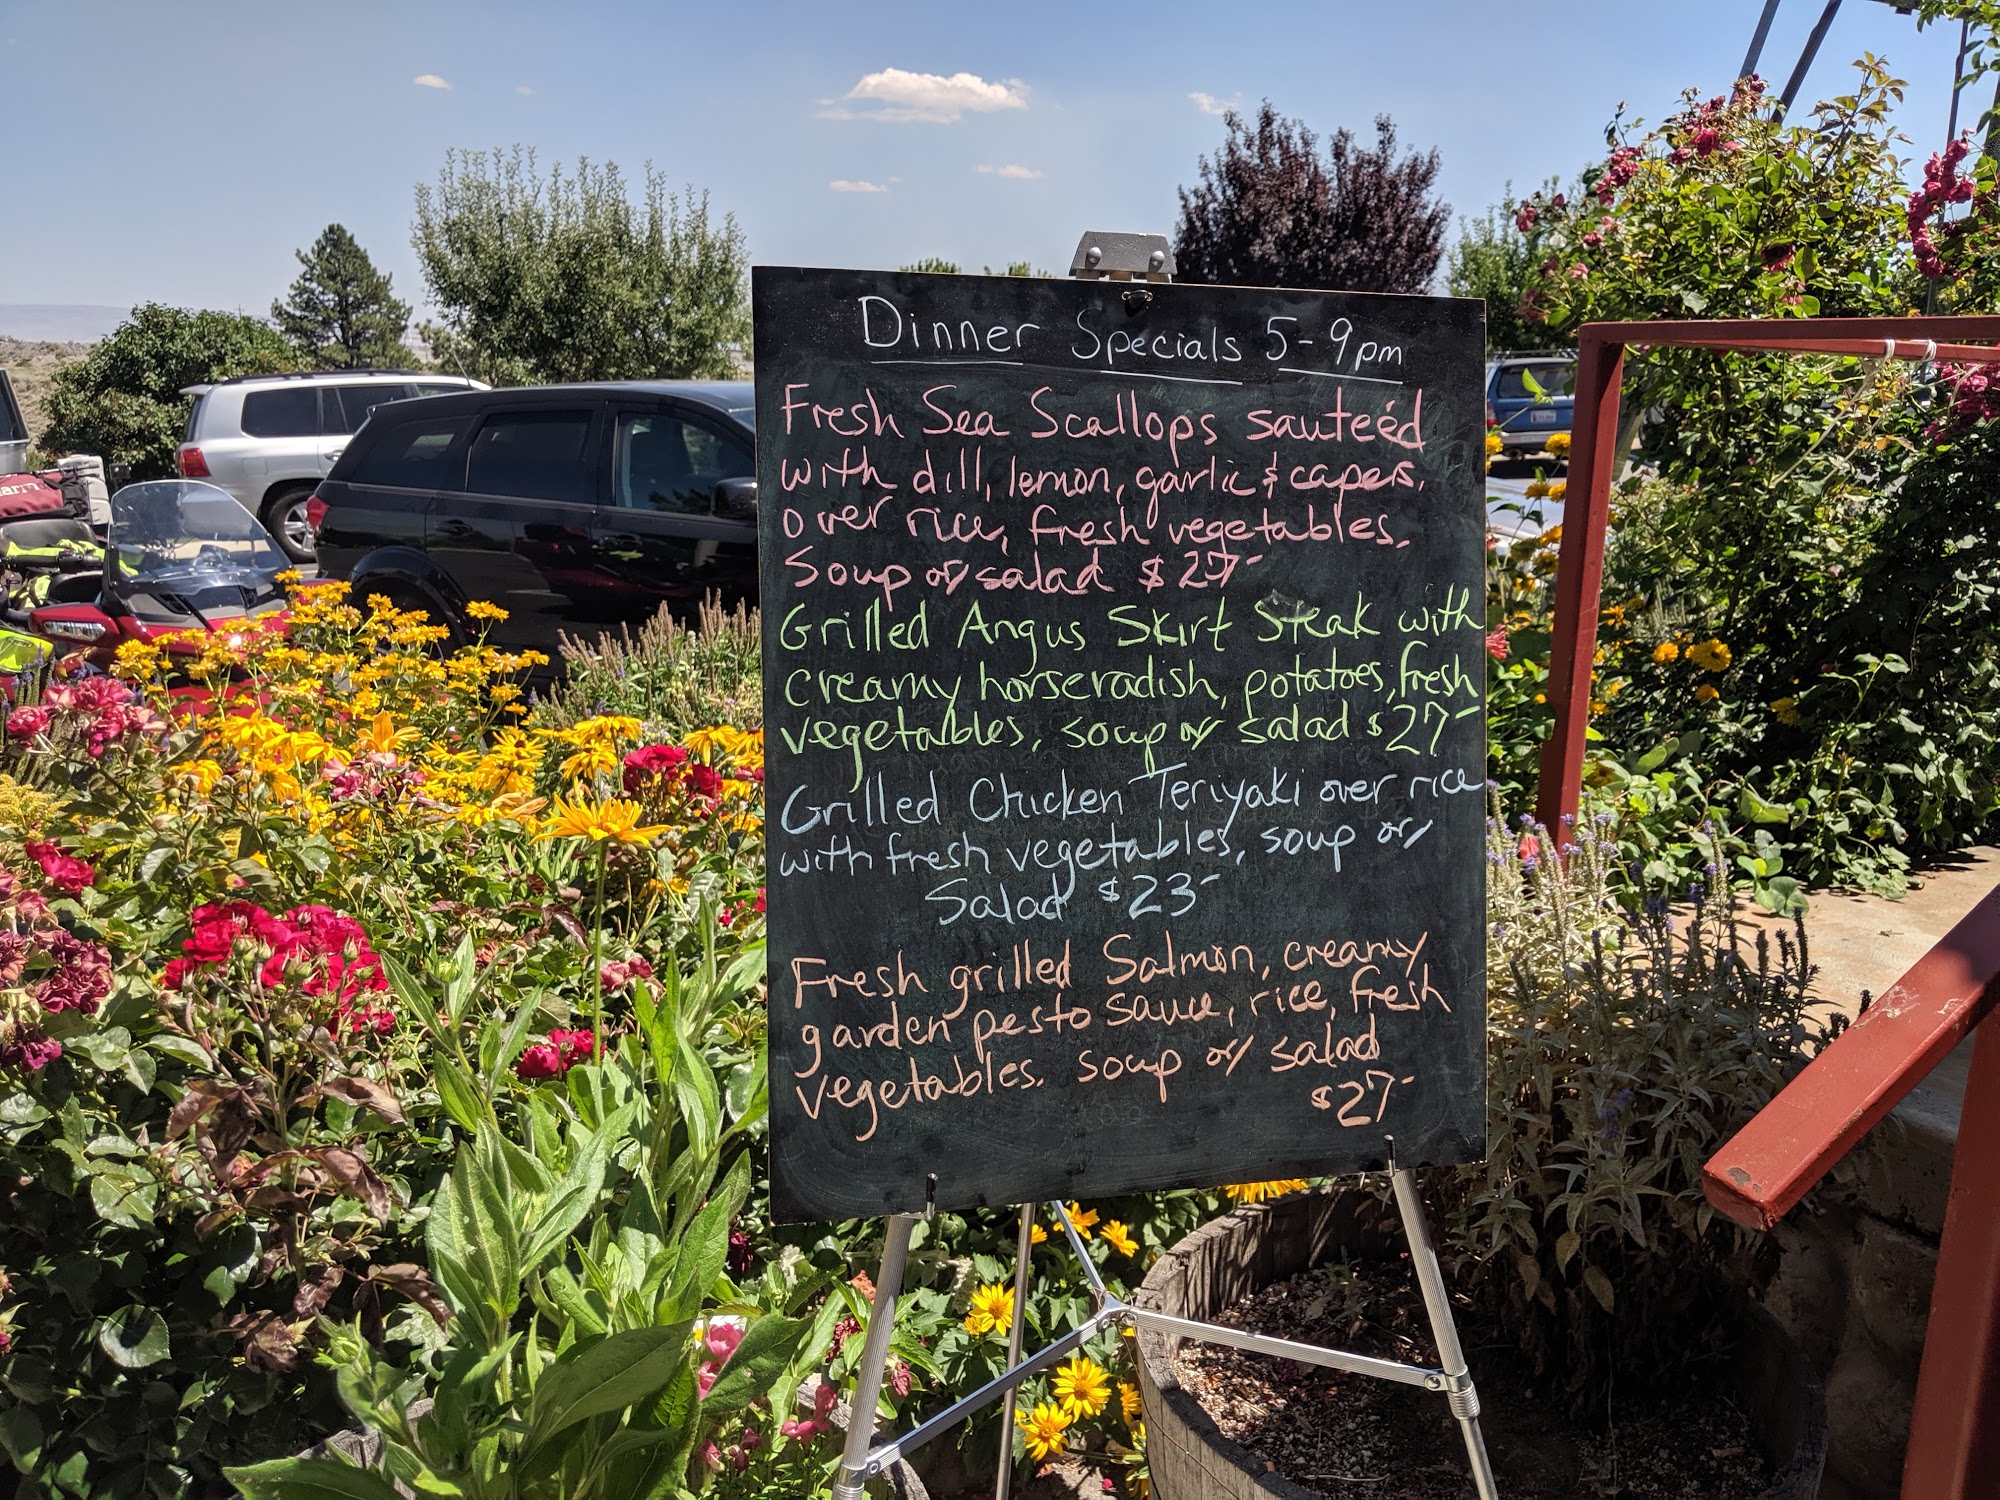 Dinner Specials 5-9pm
Fresh Sea Scallops sauteéd
with dill, lemon, garlic & capers,
over rice, fresh vegetables,
Soup or salad $27-
Grilled Angus Skirt Steak with
creamy horseradish, potatoes, fresh
vegetables, soup or salad $27-
Grilled Chicken Teriyaki over rice
with fresh vegetables, soup or
Salad $23-
Fresh grilled Salmon, creamy
garden pesto sauce, rice, fresh
vegetables. soup or salad
$27-